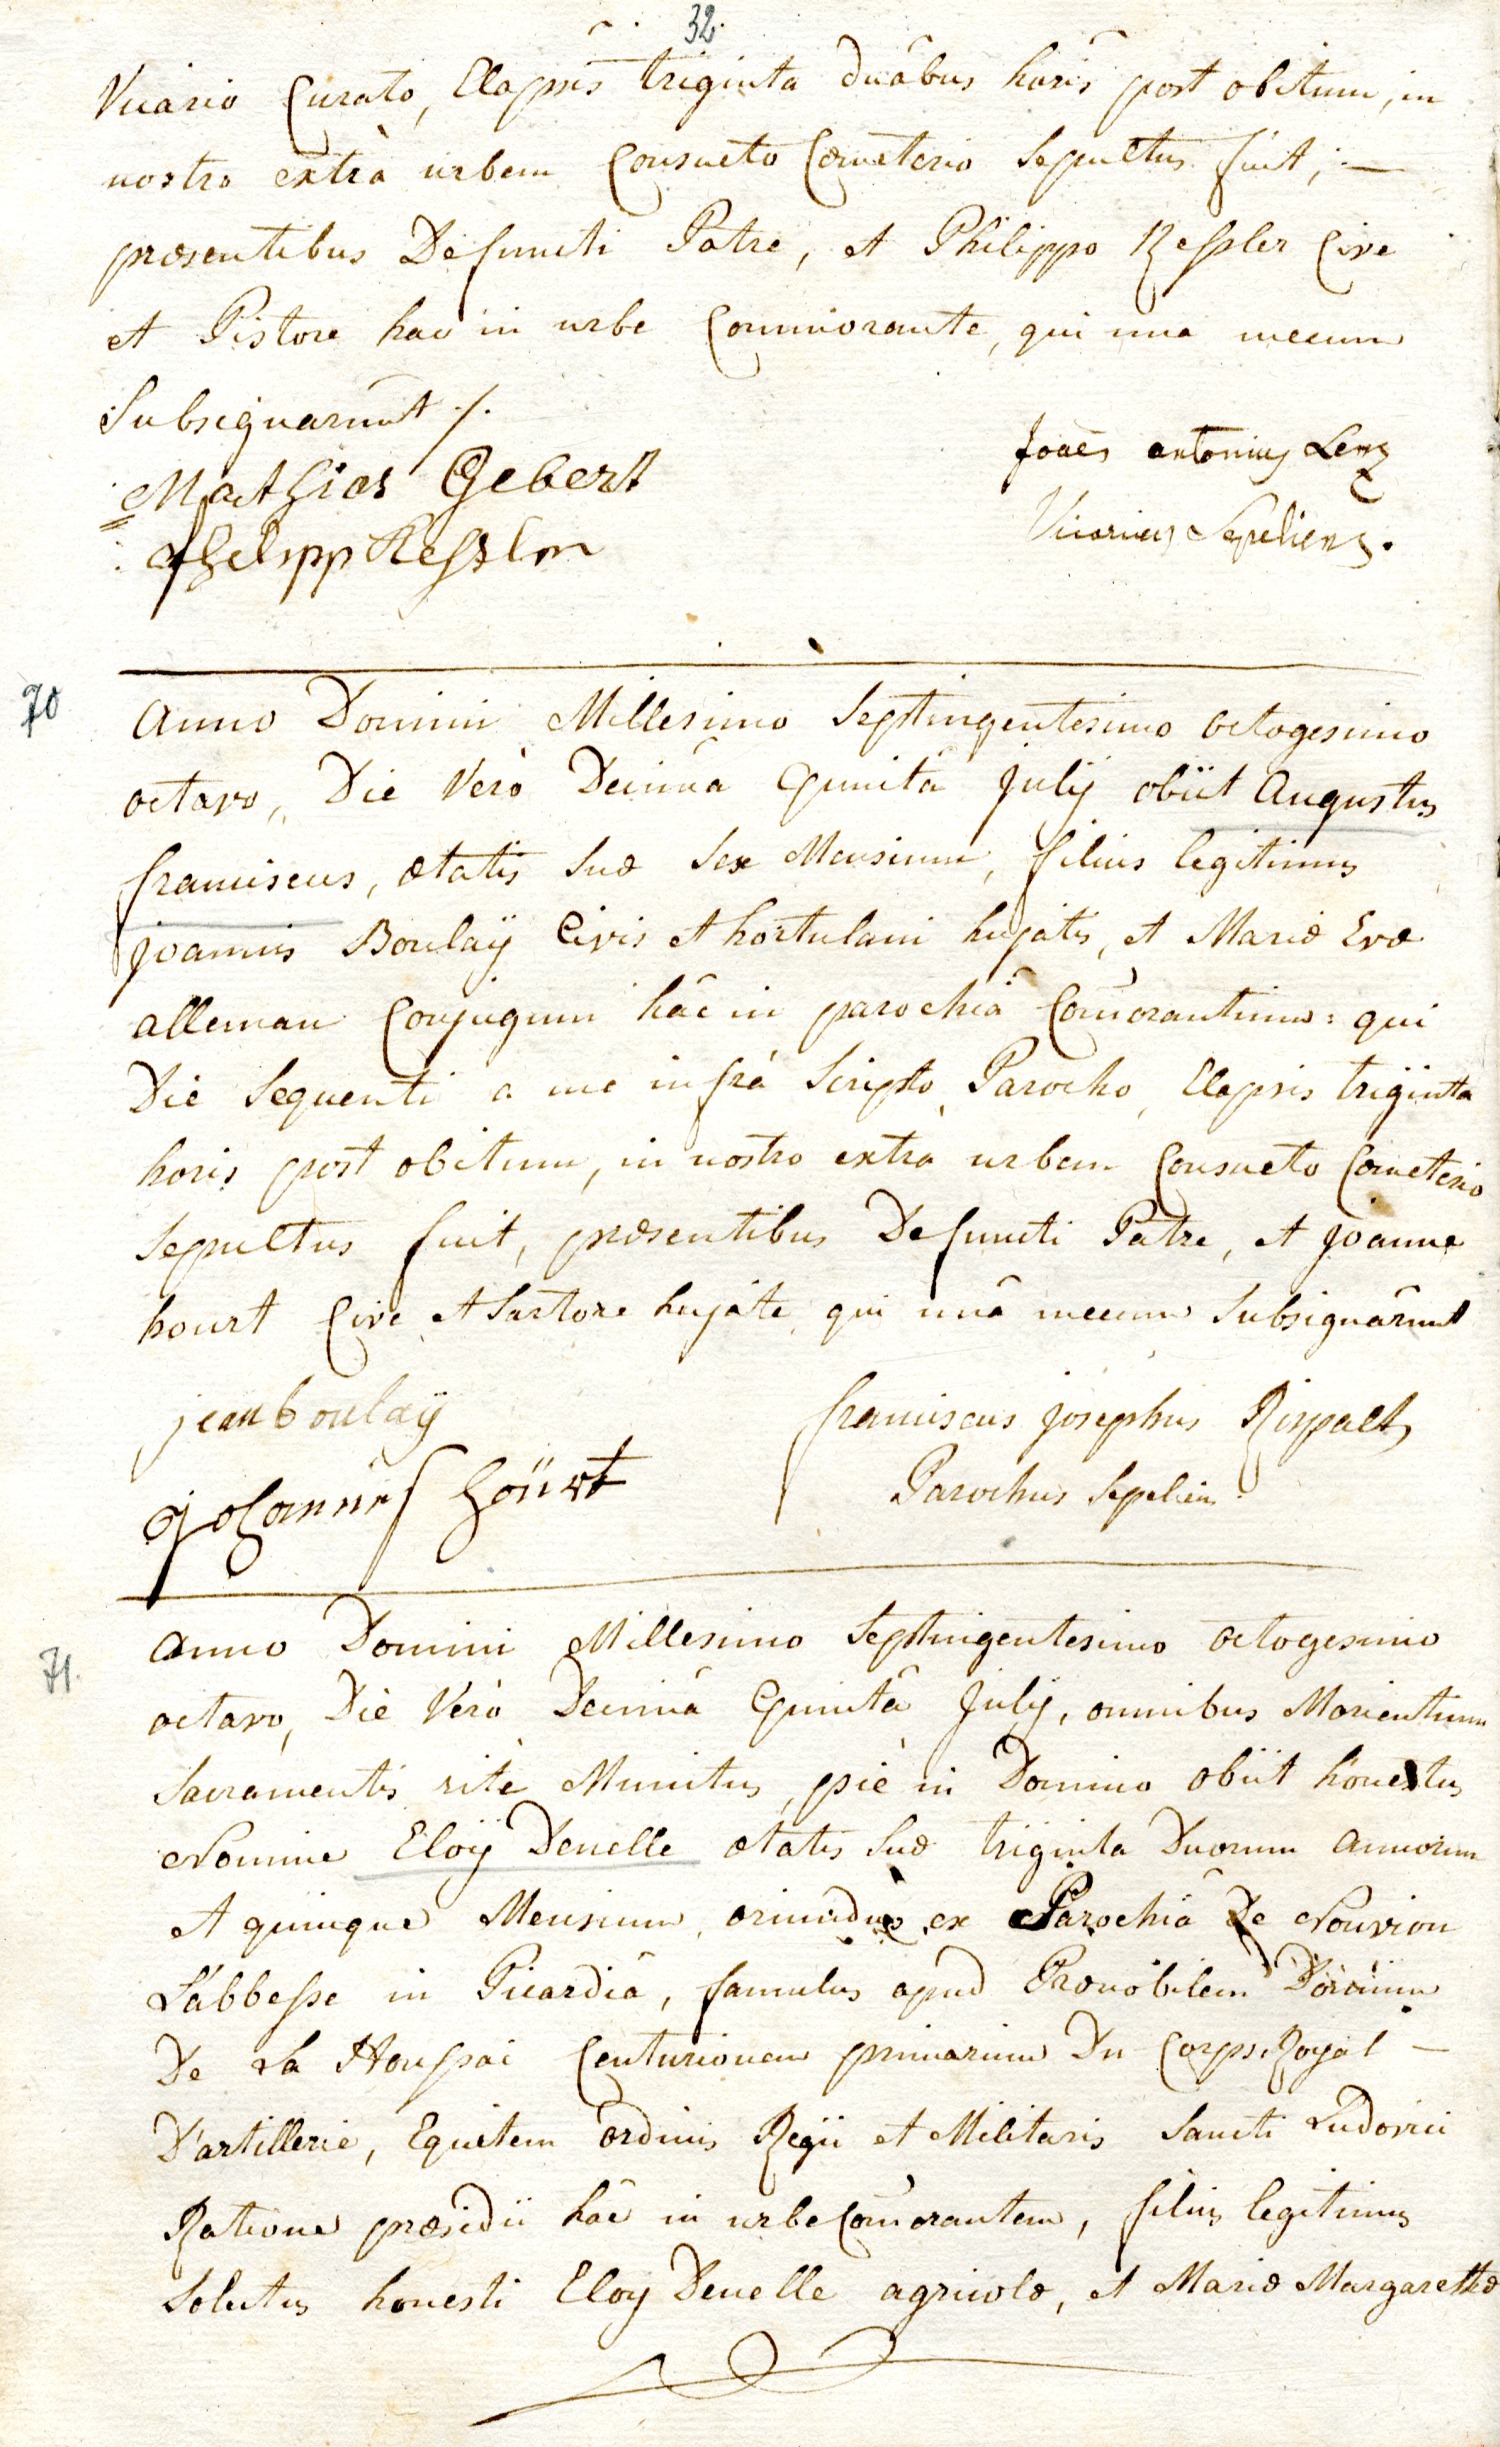 32.
Vicario Curato, Elapsis triginta duâbus horis post obitum, in
nostro extrà urbem Consueto Cœmeterio Sepultus fuit; —
præsentibus Defuncti Patre, et Philippo Kessler Cive
et Pistore hac in urbe Commorante, qui una mecum
Subsignarunt ./.
Mathias Gebert
Philipp Kessler
Joaes antonius Lenz
Vicarius Sepeliens.
70
Anno Domini Millesimo Septingentesimo octogesimo
octavo, Die Verò Decimâ Quintâ Julij obiit Augustus
franciscus, ætatis Suæ Sex Mensium, filius legitimus
joannis Boulaÿ Civis et hortulani hujatis, et Mariæ Evæ
alleman Conjugum hâc in parochiâ Com̃orantium: qui
Die Sequenti a me infrà Scripto Parocho, Elapsis triginta
horis post obitum, in nostro extrà urbem Consueto Cœmeterio
Sepultus fuit, præsentibus Defuncti Patre, et joanne
hourt Cive et Sartore hujate, qui unâ mecum Subsignârunt
jean boulaÿ
Johannes Hourt
franciscus josephus Rispalt
Parochus Sepeliens
71.
Anno Domini Millesimo Septingentesimo octogesimo
octavo, Die Verò Decimâ Quintâ Julij, omnibus Morientium
Sacramentis ritè Munitus, piè in Domino obiit honestus
Nomine Eloÿ Denelle ætatis Suæ triginta Duorum annorum
et quinque Mensium, oriundus ex Parochiâ De Nouvion
L'abbesse in Picardiâ, famulus apud Prænobilem Dominum
De La Houssai Centurionem primarium Du Corps Royal —
D'artillerie, Equitem ordinis Regii et Militaris Sancti Ludovici
Ratione præsidii hâc in urbe Com̃orantem, filius legitimus
Solutus honesti Eloy Denelle agricolæ, et Mariæ Margarethæ